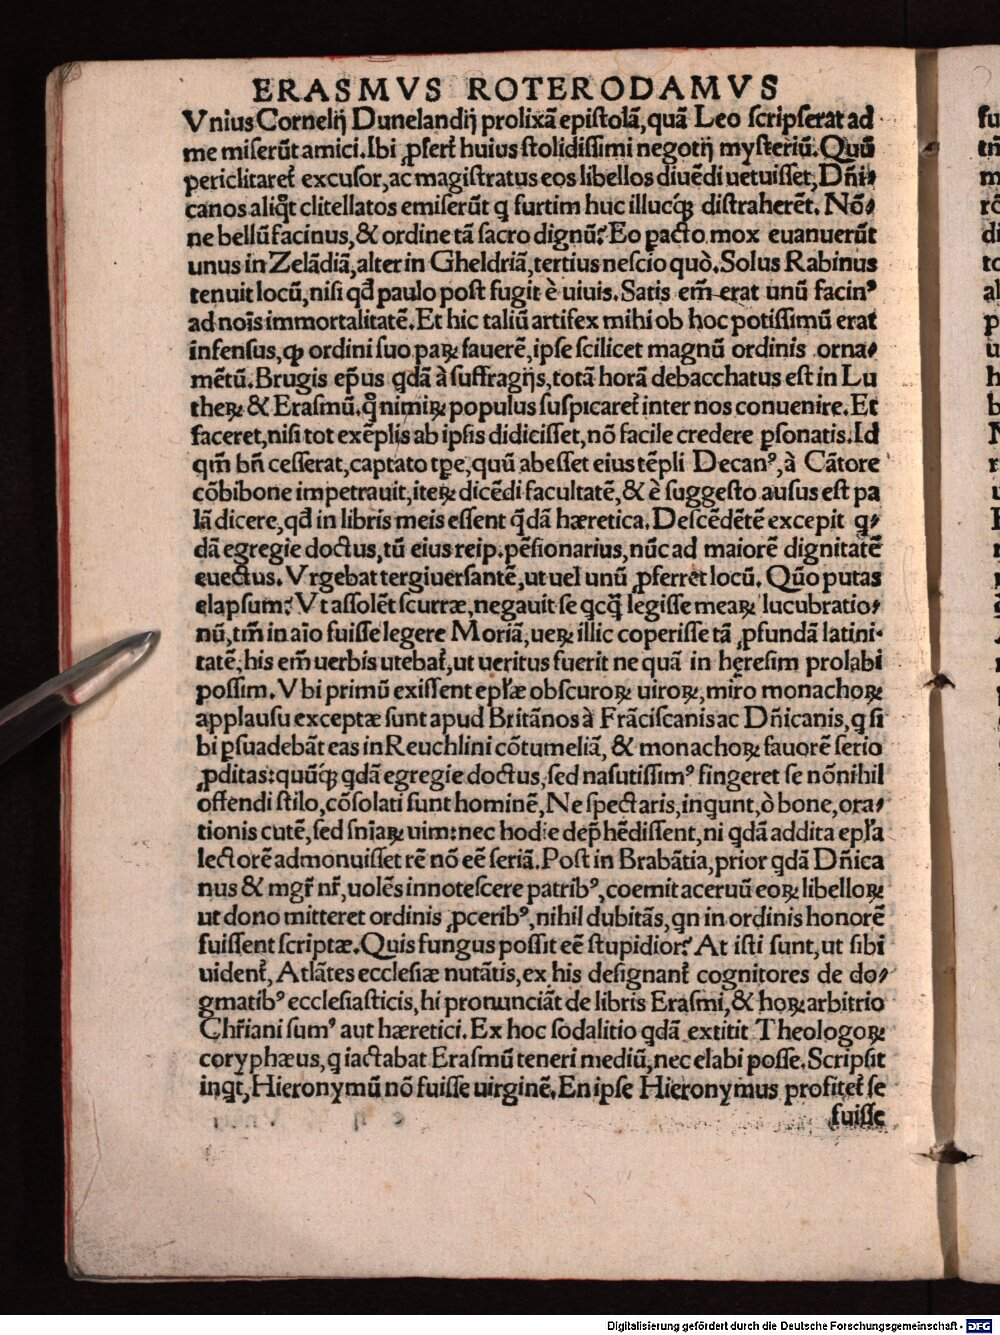 ERASMVS ROTERODAMVS
Vnius Cornelij Dunelandij prolixã epistolã, quã Leo scripserat ad
me miserũt amici. Ibi ꝓfert̃ huius stolidissimi negotij mysteriũ. Quũ
periclitaret̃ excusor, ac magistratus eos libellos diuẽdi uetuisset, Dñi⸗
canos aliq̃t clitellatos emiserũt q furtim huc illucq̃ꝫ distraherẽt. Nõ⸗
ne bellũ facinus, & ordine tã sacro dignũ? Eo ꝑacto mox euanuerũt
unus in Zelãdiã, alter in Gheldriã, tertius nescio quò. Solus Rabinus
tenuit locũ, nisi qđ paulo post fugit è uiuis. Satis em̃ erat unũ facinꝰ
ad noĩs immortalitatẽ. Et hic taliũ artifex mihi ob hoc potissimũ erat
infensus, ꝙ ordini suo paꝝ fauerẽ, ipse scilicet magnũ ordinis orna⸗
mẽtũ. Brugis ep̃us qdã à suffragijs, totã horã debacchatus est in Lu
theꝝ & Erasmũ. q̃ nimiꝝ populus suspicaret̃ inter nos conuenire. Et
faceret, nisi tot exẽplis ab ipsis didicisset, nõ facile credere ꝑsonatis. Id
qm̃ bñ cesserat, captato tꝑe, quũ abesset eius tẽpli Decanꝰ, à Cãtore
cõbibone impetrauit, iteꝝ dicẽdi facultatẽ, & è suggesto ausus est pa
lã dicere, qđ in libris meis essent q̃dã hæretica. Descẽdẽtẽ excepit q⸗
dã egregie doctus, tũ eius reip. pẽsionarius, nũc ad maiorẽ dignitatẽ
euectus. Vrgebat tergiuersantẽ, ut uel unũ ꝓferret locũ. Quõ putas
elapsum? Vt assolẽt scurræ, negauit se qcq̃ legisse meaꝝ lucubratio⸗
nũ, tm̃ in aĩo fuisse legere Moriã, ueꝝ illic coperisse tã ꝓfundã latini⸗
tatẽ, his em̃ uerbis utebat̃, ut ueritus fuerit ne quã in hęresim prolabi
possim. Vbi primũ exissent ep̃læ obscuroꝝ uiroꝝ, miro monachoꝝ
applausu exceptæ sunt apud Britãnos à Frãciscanis ac Dñicanis, q si
bi ꝑsuadebãt eas in Reuchlini cõtumeliã, & monachoꝝ fauorẽ serio
ꝓditas: quũqꝫ qdã egregie doctus, sed nasutissimꝰ fingeret se nõnihil
offendi stilo, cõsolati sunt hominẽ, Ne spectaris, inqunt, ò bone, ora⸗
tionis cutẽ, sed sñiaꝝ uim: nec hodie dep̃hẽdissent, ni qdã addita ep̃la
lectorẽ admonuisset rẽ nõ eẽ seriã. Post in Brabãtia, prior qdã Dñica
nus & mgr̃ nr̃, uolẽs innotescere patribꝰ, coemit aceruũ eoꝝ libelloꝝ
ut dono mitteret ordinis ꝓceribꝰ, nihil dubitãs, qn in ordinis honorẽ
fuissent scriptæ. Quis fungus possit eẽ stupidior? At isti sunt, ut sibi
uident̃, Atlãtes ecclesiæ nutãtis, ex his designant̃ cognitores de do⸗
gmatibꝰ ecclesiasticis, hi pronunciãt de libris Erasmi, & hoꝝ arbitrio
Chr̃iani sumꝰ aut hæretici. Ex hoc sodalitio qdã extitit Theologoꝝ
coryphæus, q iactabat Erasmũ teneri mediũ, nec elabi posse. Scripsit
inqt, Hieronymũ nõ fuisse uirginẽ. En ipse Hieronymus profitet̃ se
fuisse
Digitalisierung gefördert durch die Deutsche Forschungsgemeinschaft - DFG